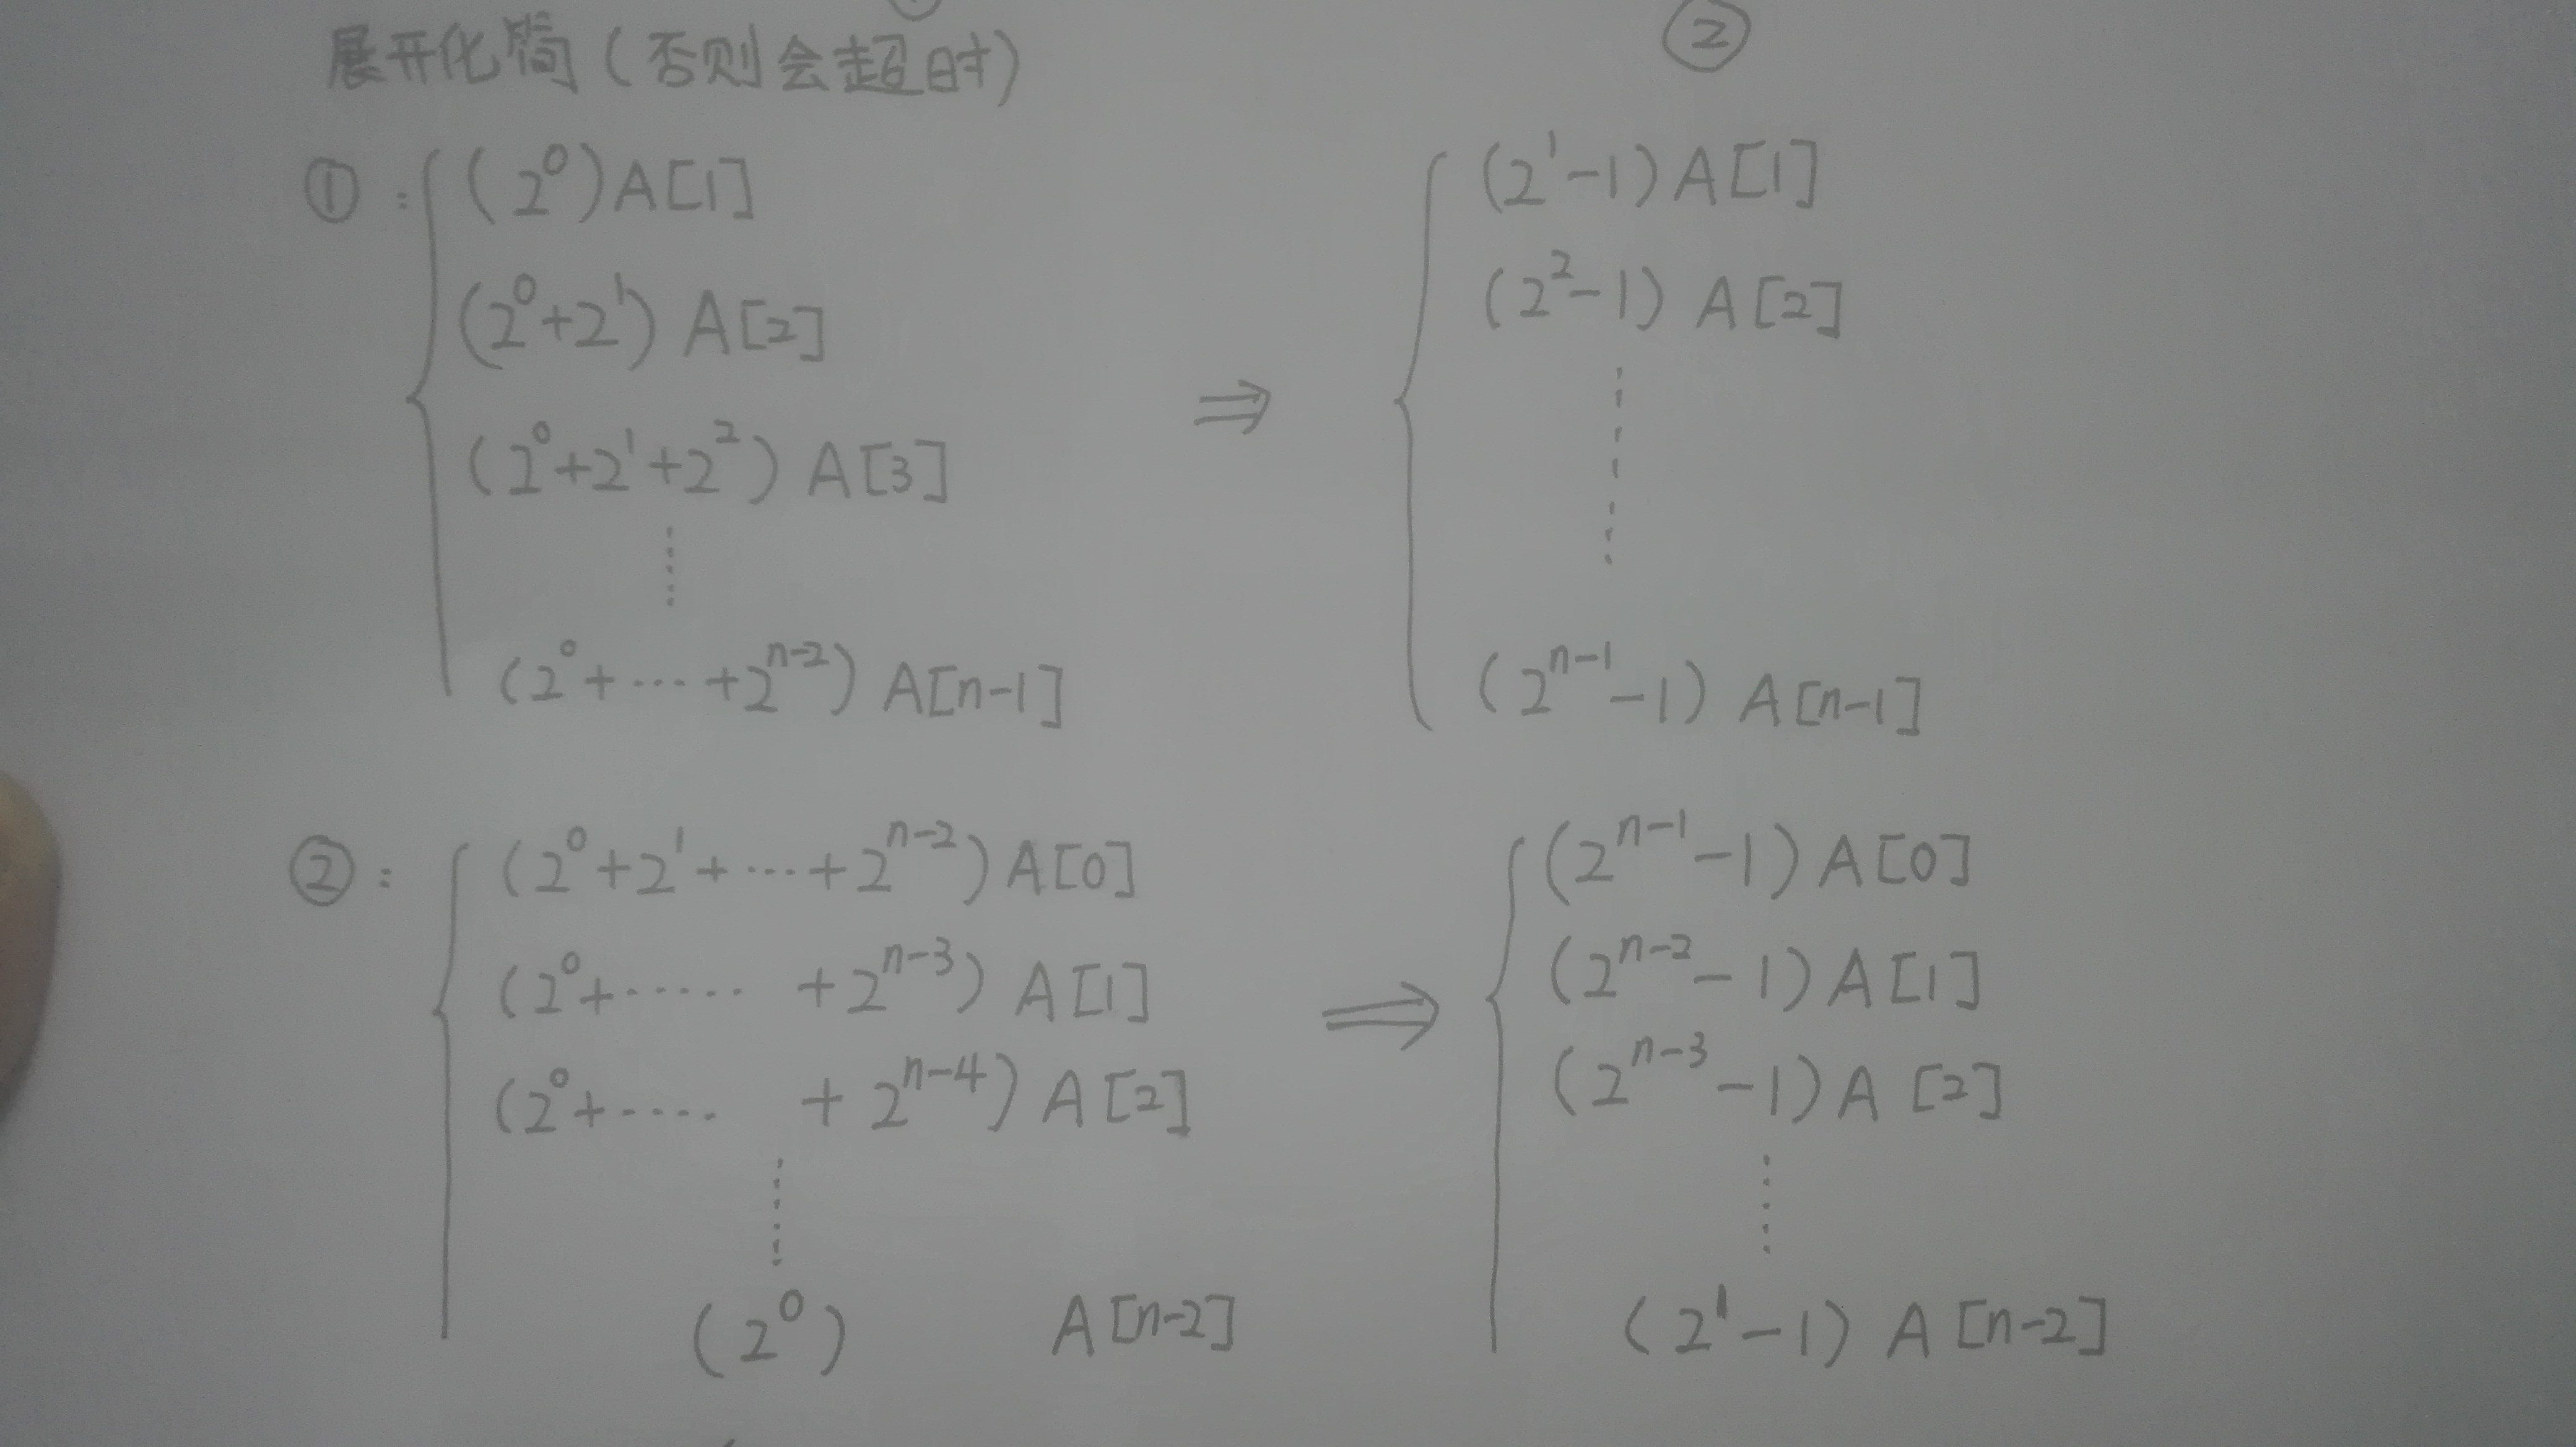 ②
展开化简(否则会超时)
①: (2^0)A[1]
(2^0+2^1) A[2]
(2^0+2^1+2^2) A[3]
⋮
(2^0+…+2^{n-2}) A[n-1]
⇒
(2^1-1) A[1]
(2^2-1) A[2]
⋮
(2^{n-1}-1) A[n-1]
②: (2^0+2^1+…+2^{n-2}) A[0]
(2^0+…… +2^{n-3}) A[1]
(2^0+…… +2^{n-4}) A[2]
⋮
(2^0) A[n-2]
⇒
(2^{n-1}-1) A[0]
(2^{n-2}-1) A[1]
(2^{n-3}-1) A[2]
⋮
(2^1-1) A[n-2]